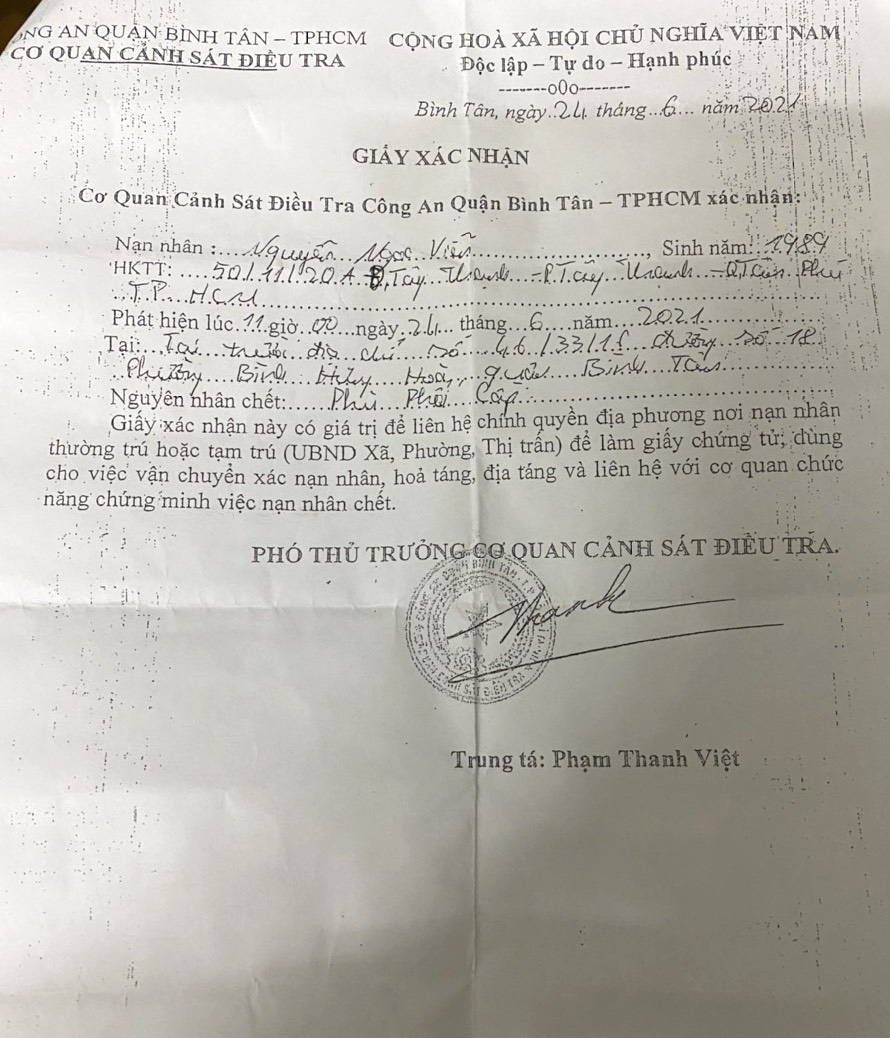 ÔNG AN QUẬN BÌNH TÂN – TPHCM
CƠ QUAN CẢNH SÁT ĐIỀU TRA
CỘNG HOÀ XÃ HỘI CHỦ NGHĨA VIỆT NAM
Độc lập – Tự do – Hạnh phúc
-------o0o-------
Bình Tân, ngày 24 tháng 6 năm 2021
GIẤY XÁC NHẬN
Cơ Quan Cảnh Sát Điều Tra Công An Quận Bình Tân – TPHCM xác nhận:
Nạn nhân : Nguyễn Ngọc Viễn, Sinh năm: 1989
HKTT: 50/11/20A Đ, Tây Thạnh – P. Tây Thạnh – Q. Tân Phú
TP. HCM
Phát hiện lúc 11 giờ 00 ngày 24 tháng 6 năm 2021
Tại: Tại trước địa chỉ số 46/33/ đường số 18
Phường Bình Hưng Hoà, quận Bình Tân
Nguyên nhân chết: Phù Phổi Cấp
Giấy xác nhận này có giá trị để liên hệ chính quyền địa phương nơi nạn nhân
thường trú hoặc tạm trú (UBND Xã, Phường, Thị trấn) để làm giấy chứng tử; dùng
cho việc vận chuyển xác nạn nhân, hoả táng, địa táng và liên hệ với cơ quan chức
năng chứng minh việc nạn nhân chết.
PHÓ THỦ TRƯỞNG CƠ QUAN CẢNH SÁT ĐIỀU TRA.
Thanh
Trung tá: Phạm Thanh Việt